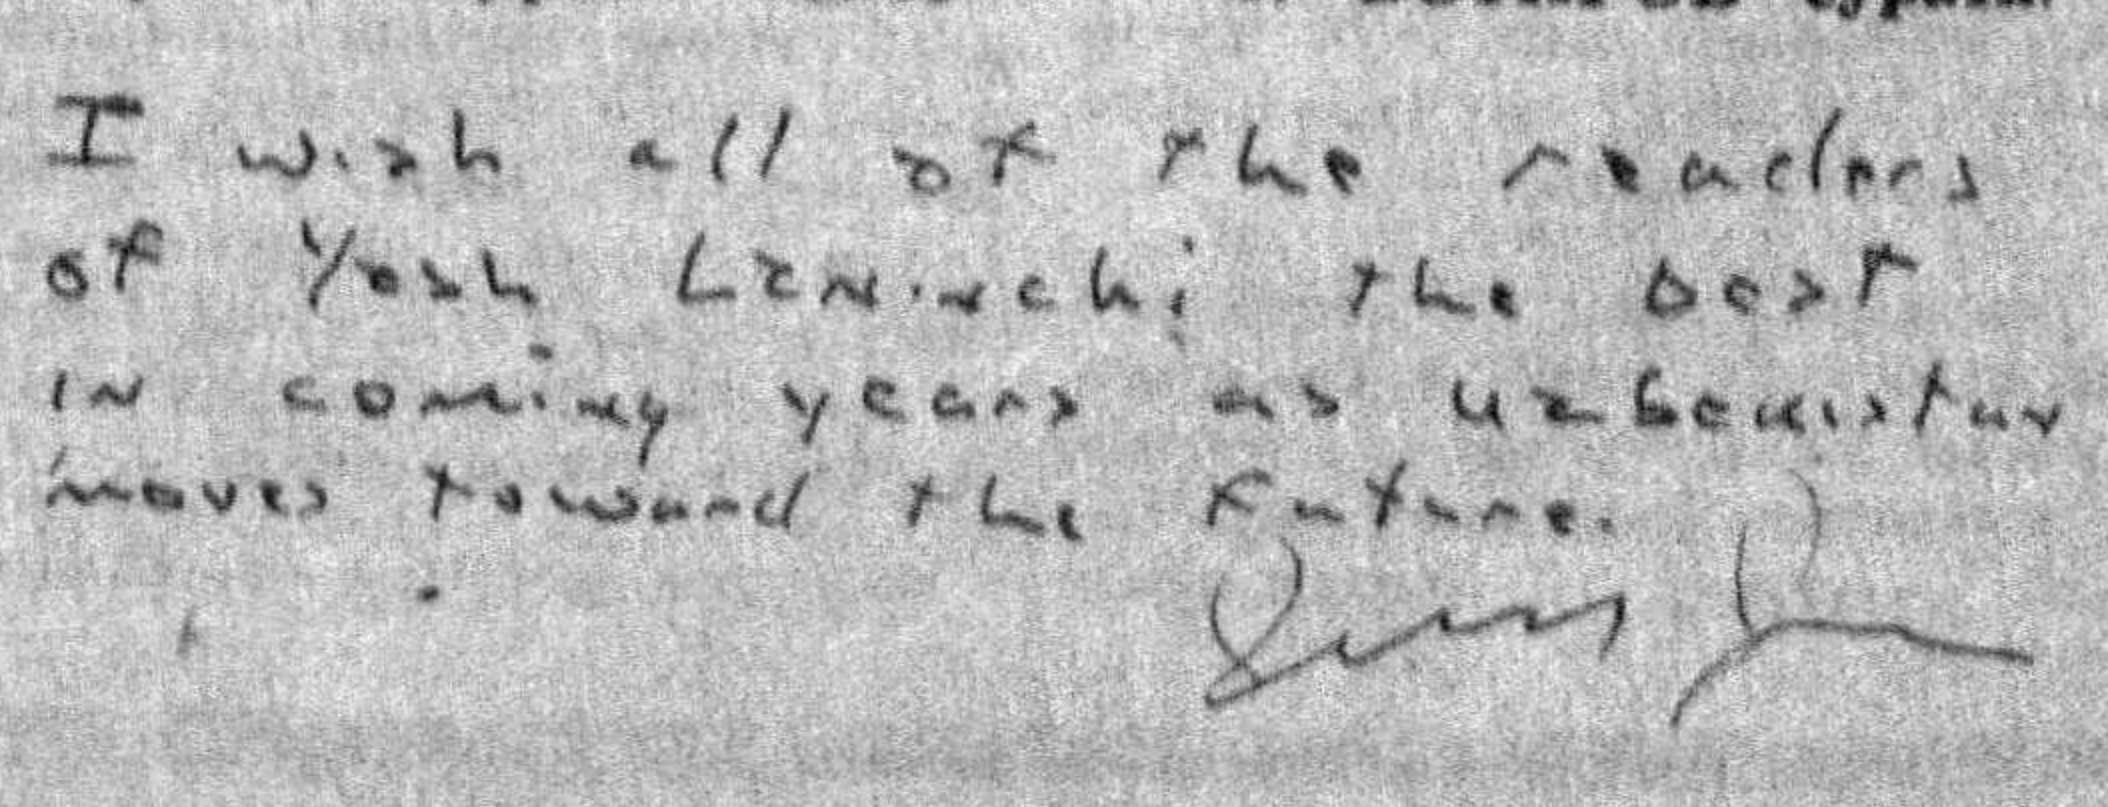 I wish all of the readers
of Yosh Leninchi the best
in coming years as Uzbekistan
moves toward the future.